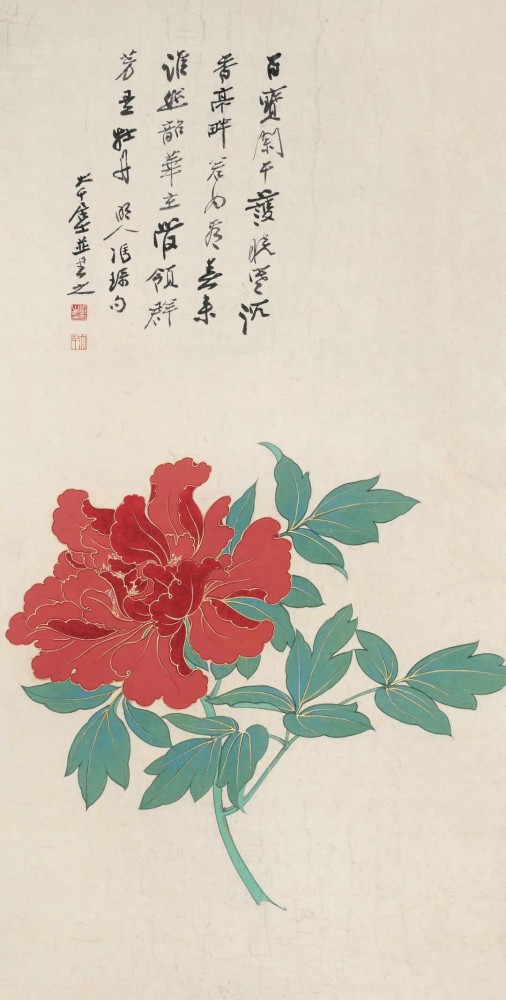 百寶闌干護曉寒沉
香亭畔若為看春來
誰作韶華主管領群
芳是牡丹 明人馮琢句
大千居士並書之